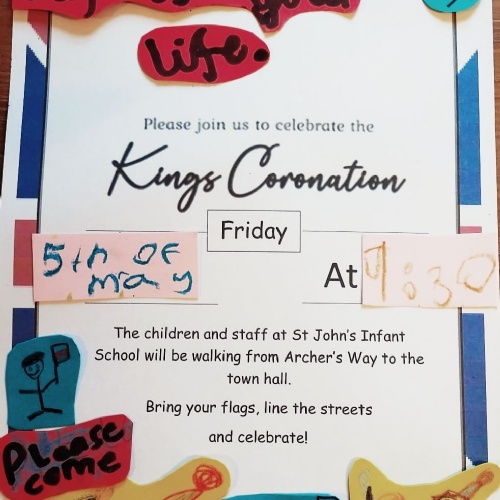 life.
Please join us to celebrate the
Kings Coronation
Friday
5th of
may
At 1:30
The children and staff at St John's Infant
School will be walking from Archer's Way to the
town hall.
Bring your flags, line the streets
and celebrate!
Please
come